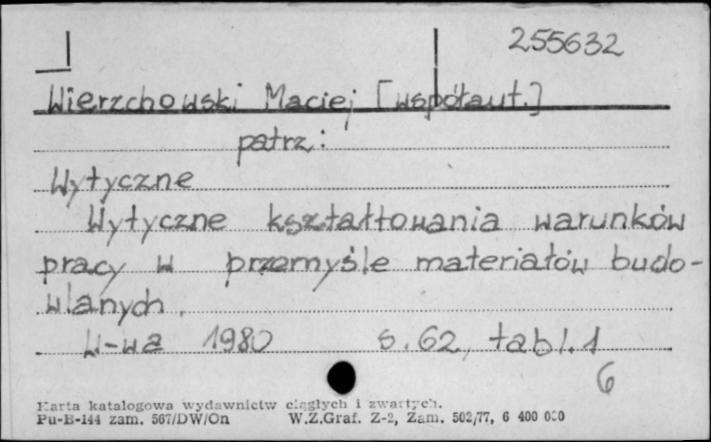 255632
Wierzchowski Maciej [współaut.]
patrz:
Wytyczne
Wytyczne kształtowania warunków
pracy w przemyśle materiałów budo-
wlanych.
W-wa 1980 s. 62, tabl. 1
6
Karta katalogowa wydawnictw ciągłych i zwartych.
Pu-B-144 zam. 567/DW/On W.Z.Graf. Z-2, Zam. 502/77, 6 400 000